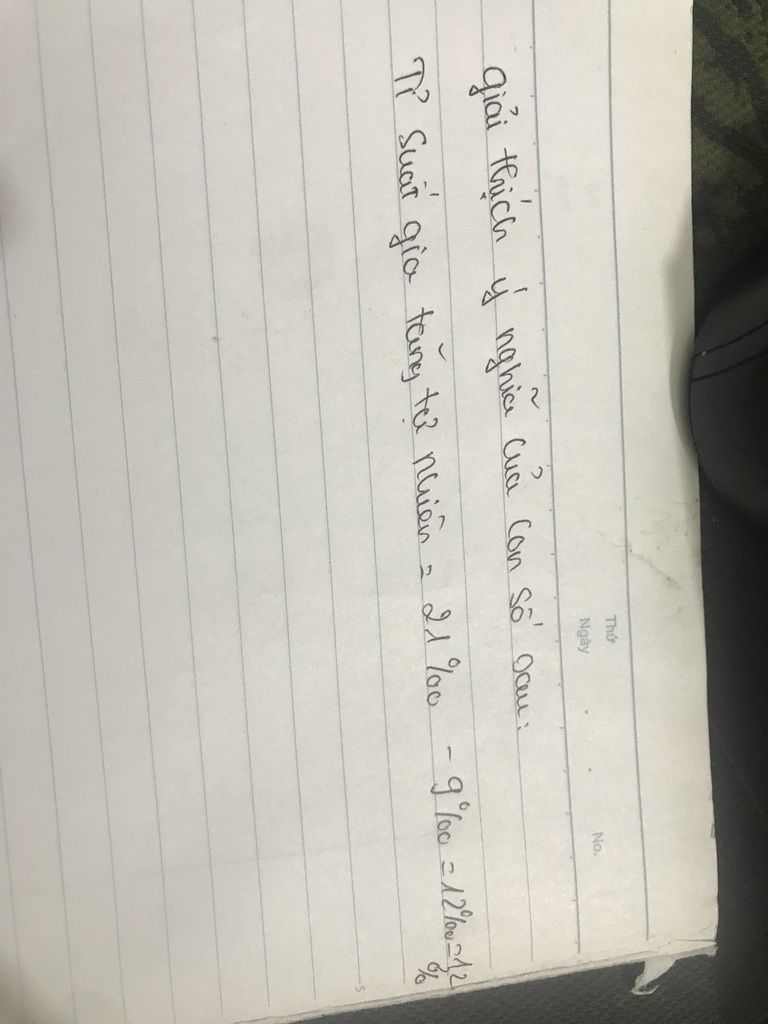 Thứ
Ngày . . No.
giải thích ý nghĩa của con số sau:
Tỉ suất gia tăng tự nhiên = 21‰ - 9‰ = 12‰ = 12
%
5